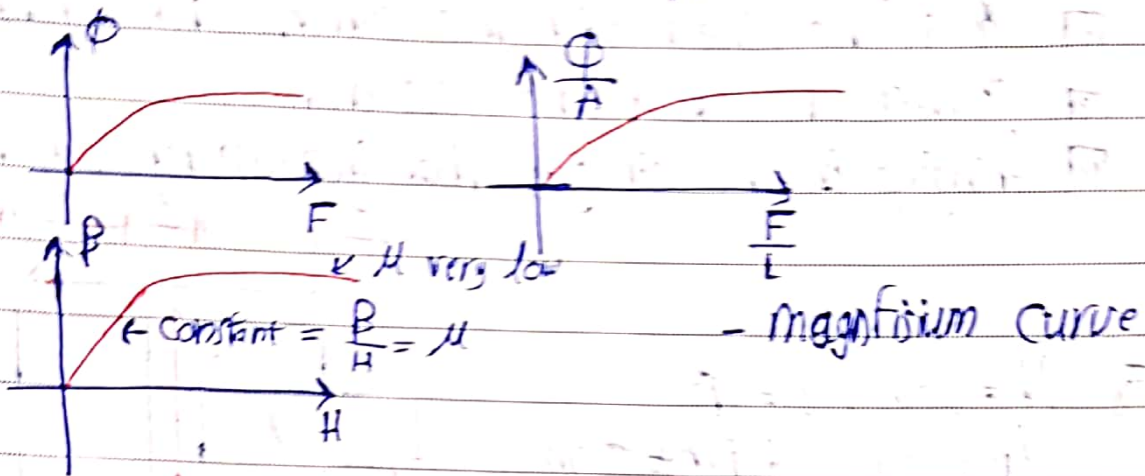 Φ
Φ/A
F
F/L
β
μ very low
← constant = β/H = μ
- magnfisium curve
H